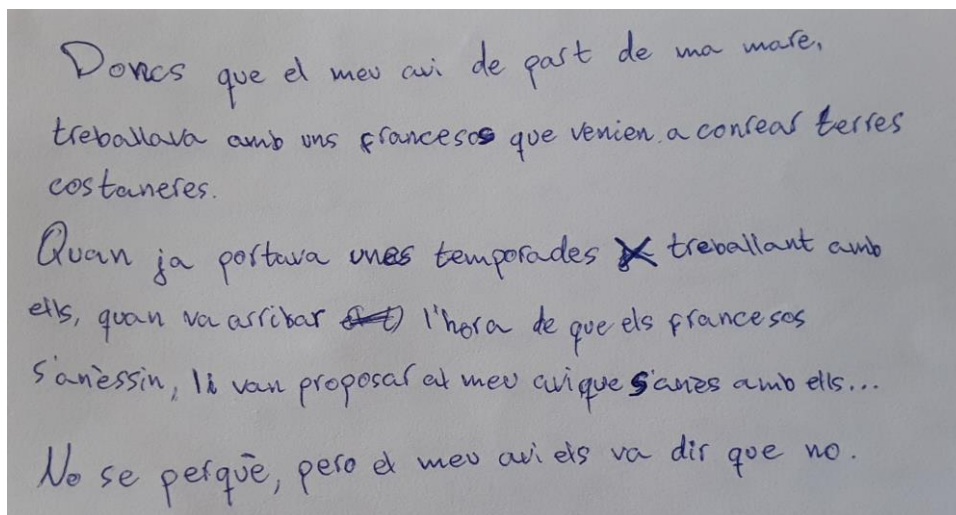 Doncs que el meu avi de part de ma mare,
treballava amb uns francesos que venien a conrear terres
costaneres.
Quan ja portava unes temporades treballant amb
ells, quan va arribar l'hora de que els francesos
s'anèssin, li van proposar al meu avi que s'anès amb ells...
No se perquè, pero el meu avi els va dir que no.